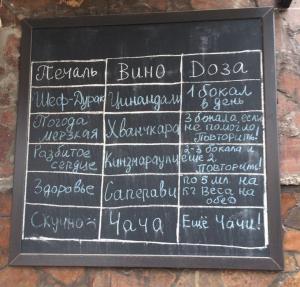 Печаль Вино Доза
Шеф-Дурак Цинандали 1 бокал
в день
Погода
мерзкая Хванчкара 3 бокала, если
не помогло
Повторить!
Разбитое
сердце Киндзмараули 2-3 бокала и
ещё 2.
Повторить!
Здоровье Саперави по 5 мл. на
кг веса на
обед
Скучно Чача Ещё Чачи!